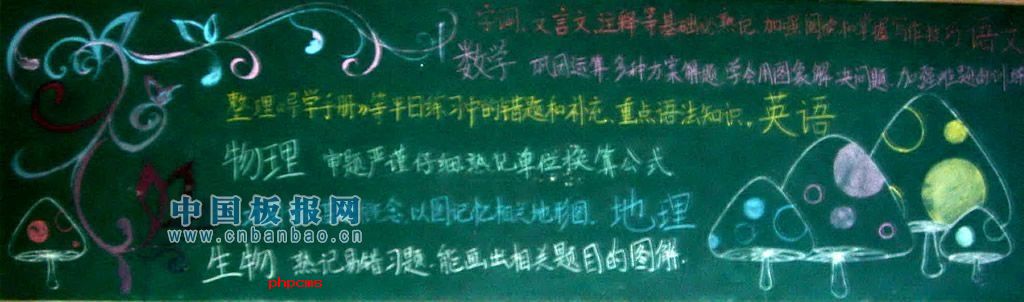 字词、文言文、注释等基础必熟记,加强阅读和掌握写作技巧 语文
数学 巩固运算多种方案解题,学会用图象解决问题,加强难题的训练
整理《导学手册》等平日练习中的错题和补充,重点语法知识。英语
物理 审题严谨仔细熟记单位换算公式
概念,以图记忆相关地形图. 地理
中国板报网
www.cnbanbao.cn
生物 熟记易错习题.能画出相关题目的图解.
phpcms